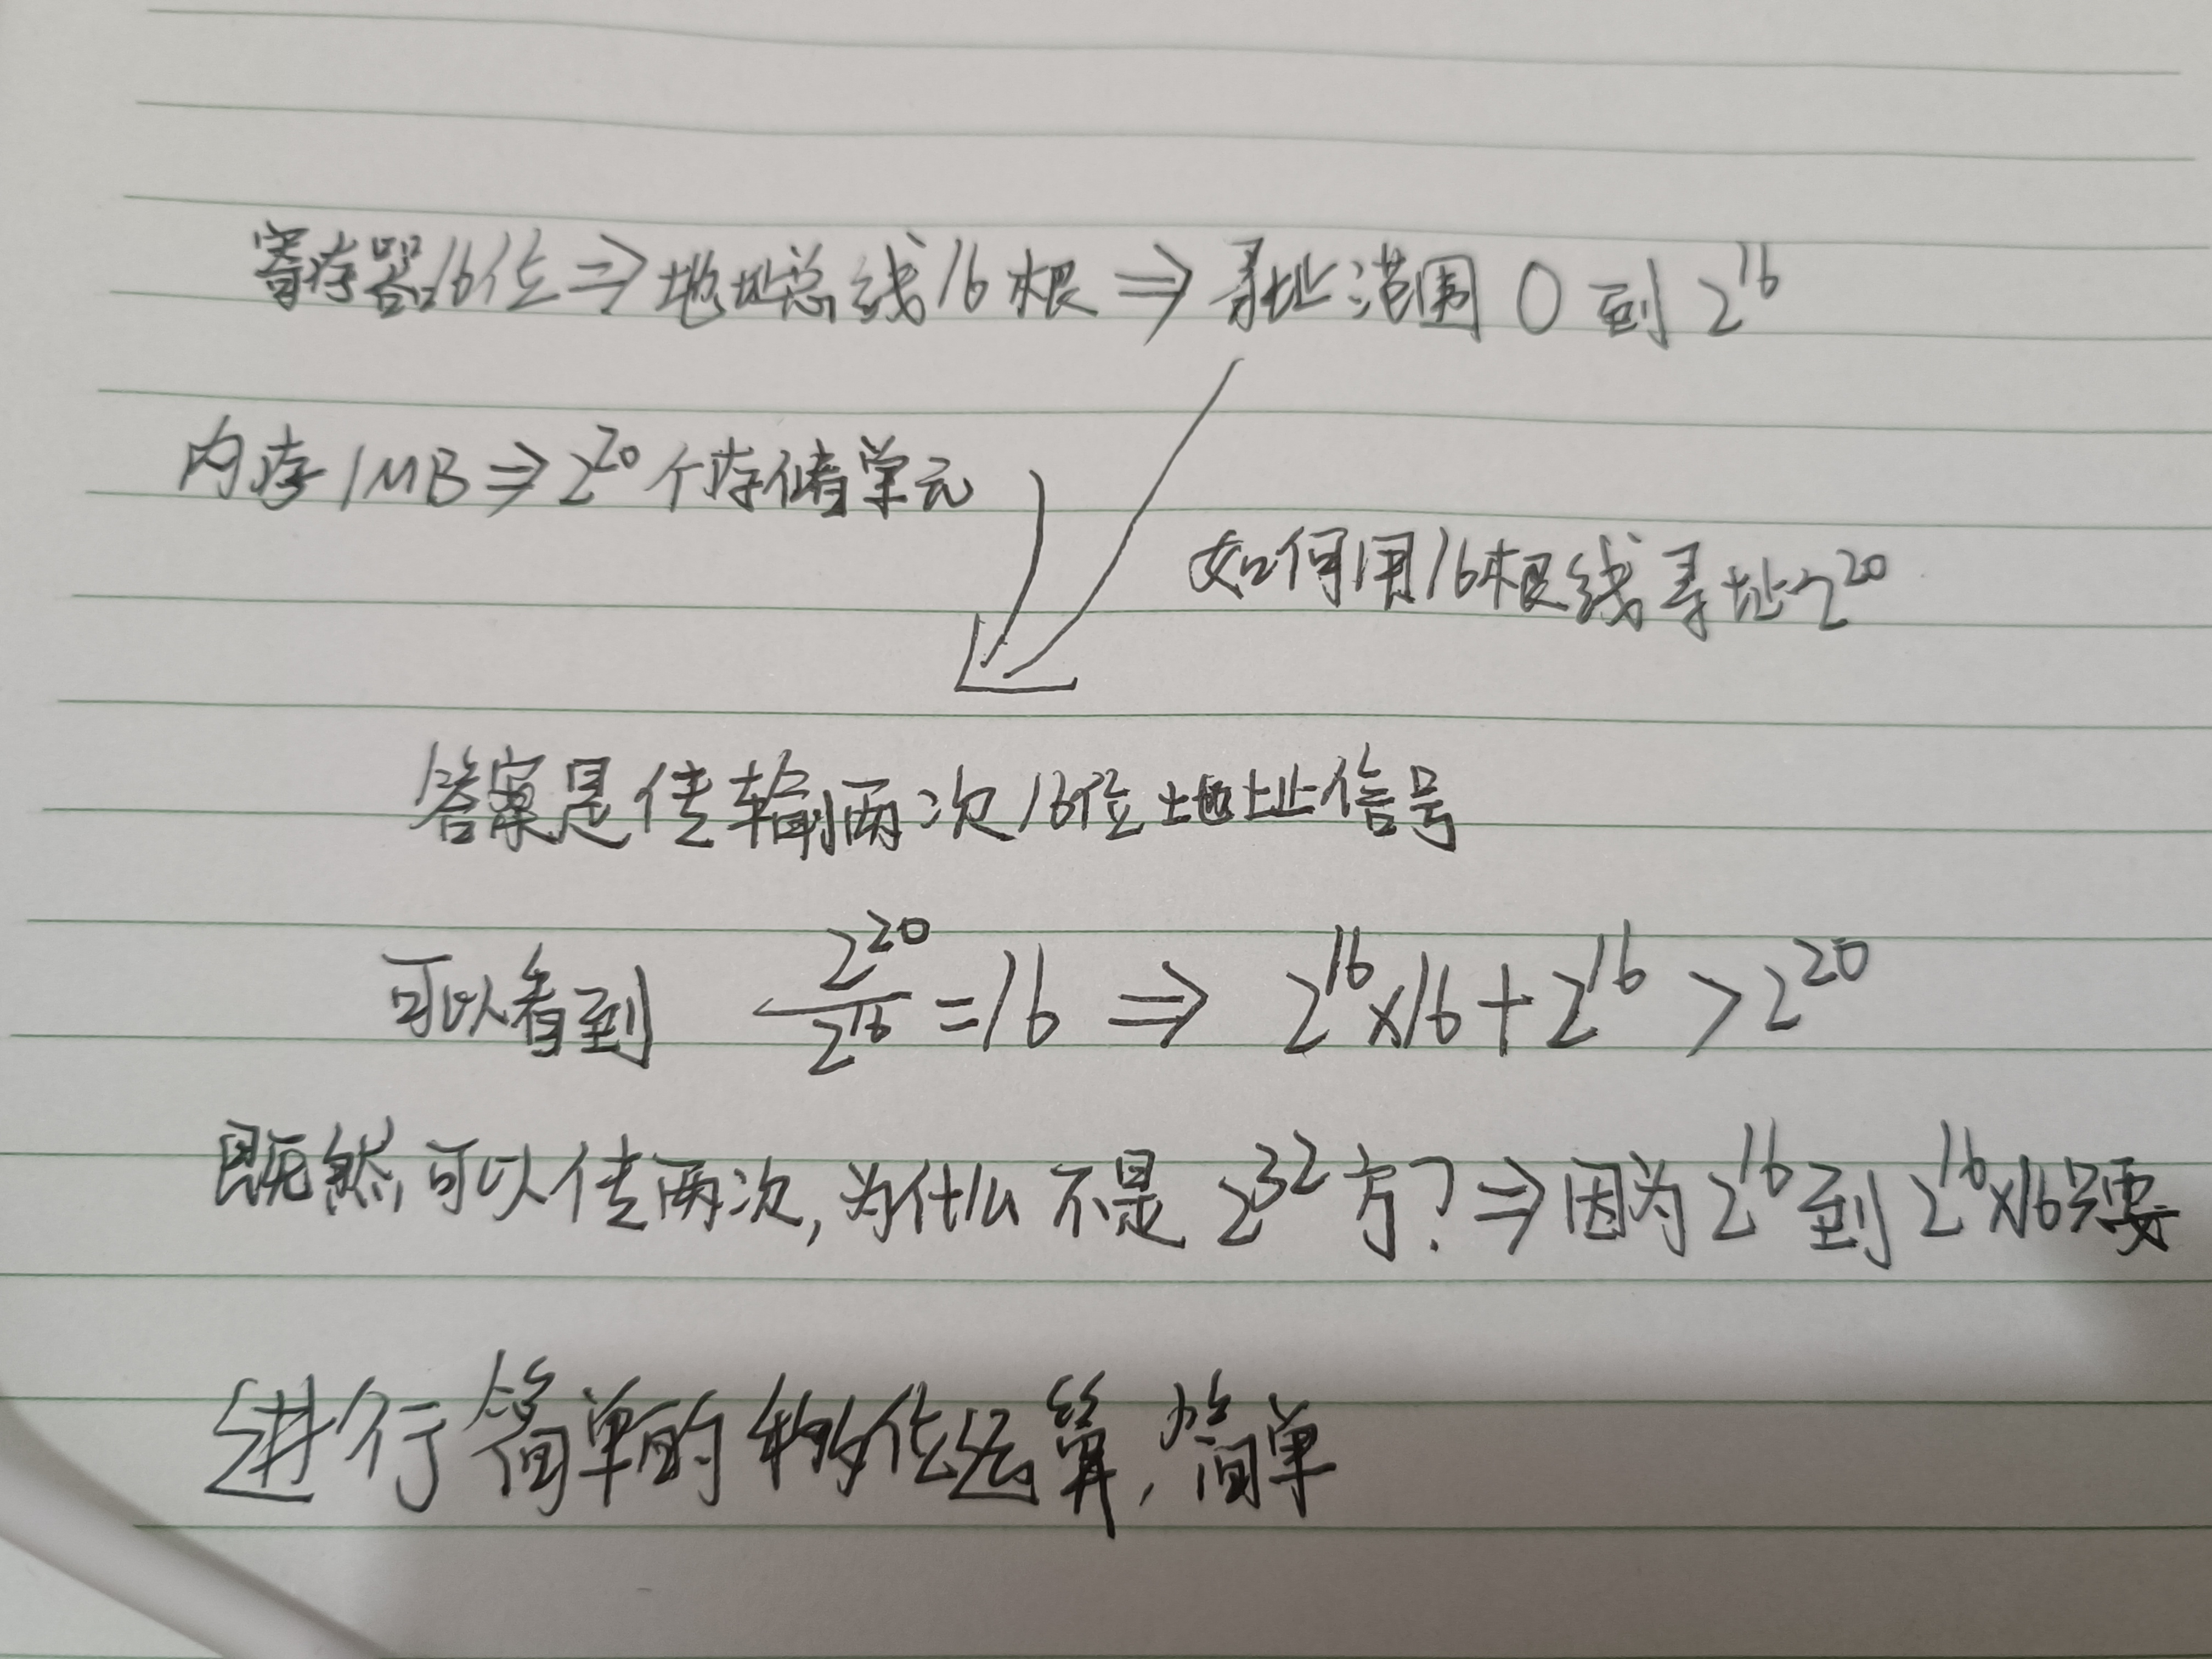 寄存器16位⇒地址总线16根⇒寻址范围 0 到 2^16
内存1MB⇒2^20个存储单元
如何用16根线寻址2^20
答案是传输两次16位地址信号
可以看到 2^20/2^16=16 ⇒ 2^16×16+2^16>2^20
既然可以传两次,为什么不是 2^32方?⇒因为2^16到2^16×16只要
进行简单的移位运算,简单